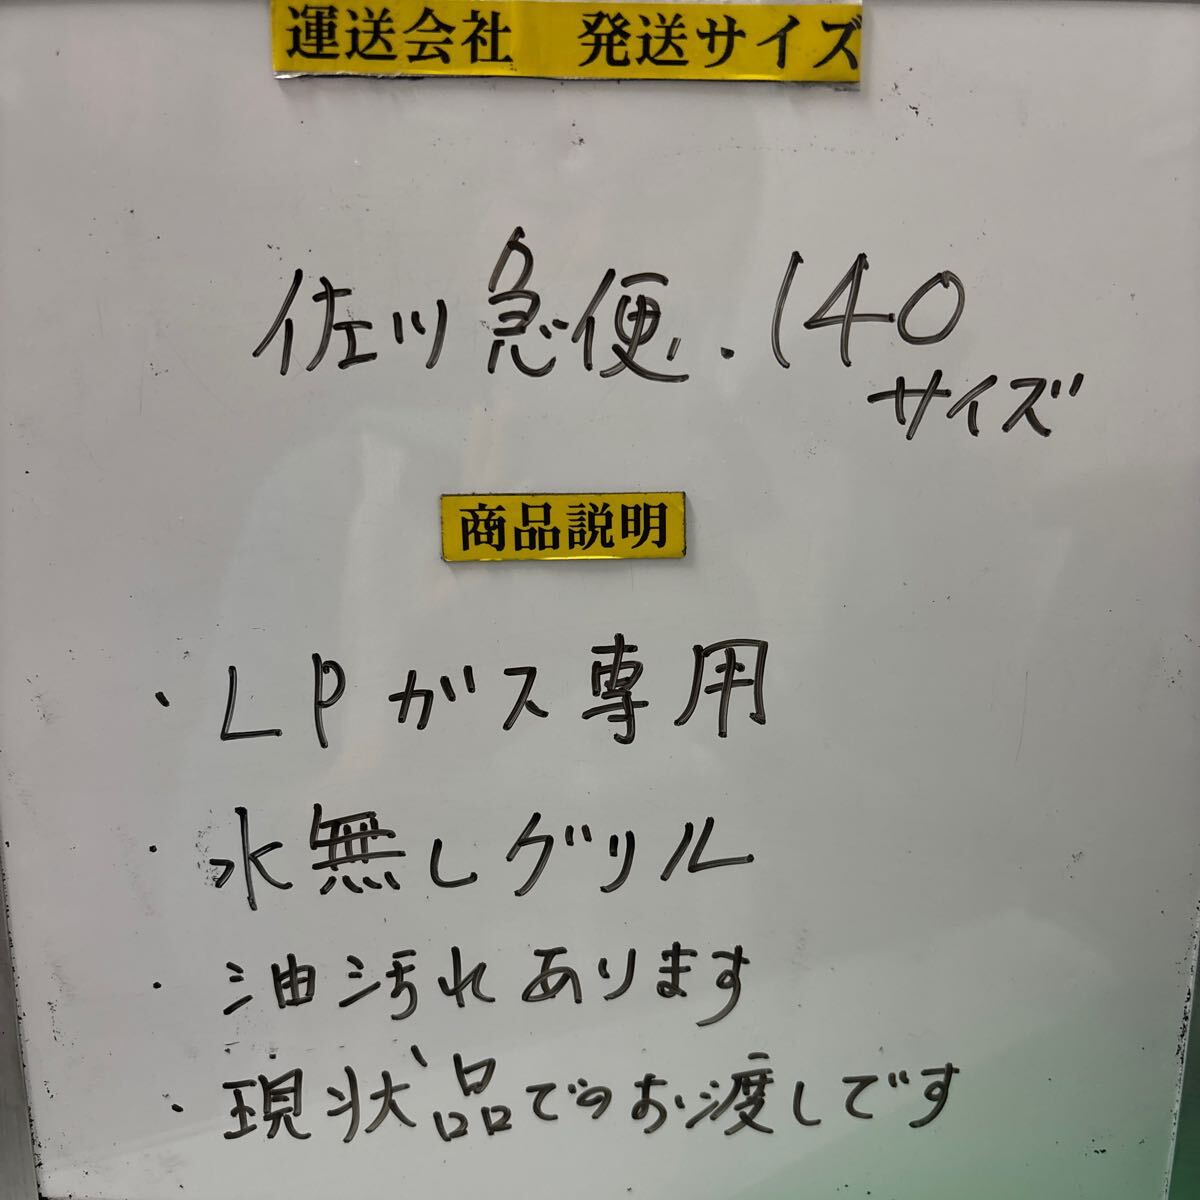 運送会社　発送サイズ
佐川急便.140
サイズ
商品説明
・LPガス専用
・水無しグリル
・油汚れあります
・現状品でのお渡しです